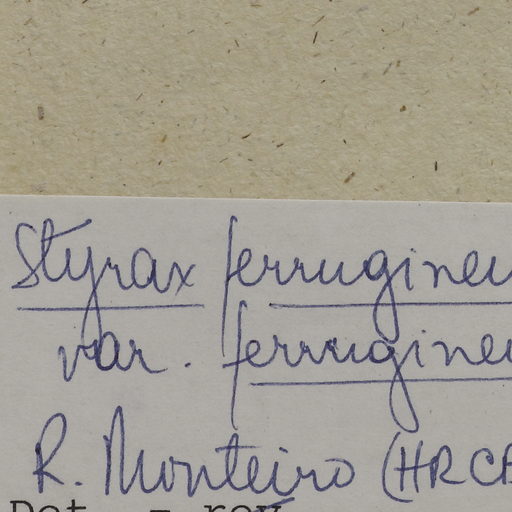 Styrax ferrugineu
var. ferrugineu
R. Monteiro (HRCB
Det. - rev.